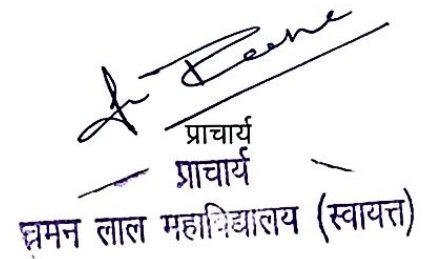 प्राचार्य
प्राचार्य
चमन लाल महाविद्यालय (स्वायत्त)